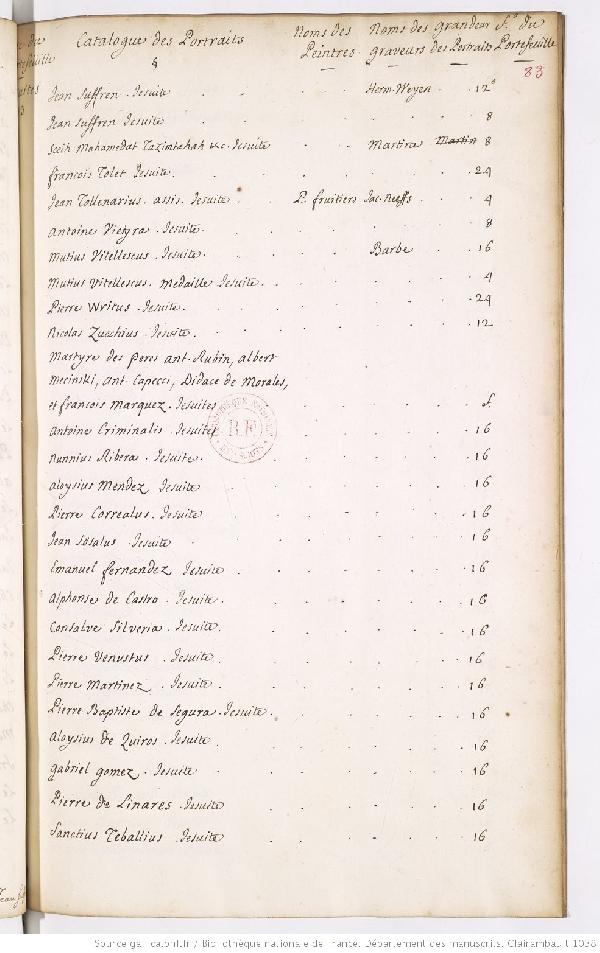 Catalogue des Portraits Noms des Peintres Noms des graveurs Grandeur des Portraits f.º du Portefeuille
S
83
Jean Suffren . Jesuite Herm. Weyen 12º
Jean Suffren Jesuite 8
Seeih Mahamedat Tazimtehah &c. Jesuite Martira Martin 8
françois Tolet Jesuite 24
Jean Tollenarius . assis . Jesuite P. fruitiers Jac. Neeffs 4
Antoine Vieyra . Jesuite 8
Mutius Vitellescus . Jesuite Barbe 16
Mutius Vitellescus . Medaille Jesuite 4
Pierre Writus . Jesuite 24
Nicolas Zucchius . Jesuite 12
Martyre des Peres Ant. Rubin, Albert
Mecinski, Ant. Capecci, Didace de Morales,
et francois Marquez . Jesuites f.
Antoine Criminalis . Jesuite 16
Nunnius Ribera . Jesuite 16
Aloysius Mendez Jesuite 16
Pierre Correalus . Jesuite 16
Jean Sosalus . Jesuite 16
Emanuel fernandez Jesuite 16
Alphonse de Castro . Jesuite 16
Consalve Silveria . Jesuite 16
Pierre Venustus . Jesuite 16
Pierre Martinez . Jesuite 16
Pierre Baptiste de Segura . Jesuite 16
Aloysius de Quiros . Jesuite 16
gabriel gomez . Jesuite 16
Pierre de Linares . Jesuite 16
Sanctius Teballius . Jesuite 16
R.F.
Source gallica.bnf.fr / Bibliothèque nationale de France. Département des manuscrits. Clairambault 1038